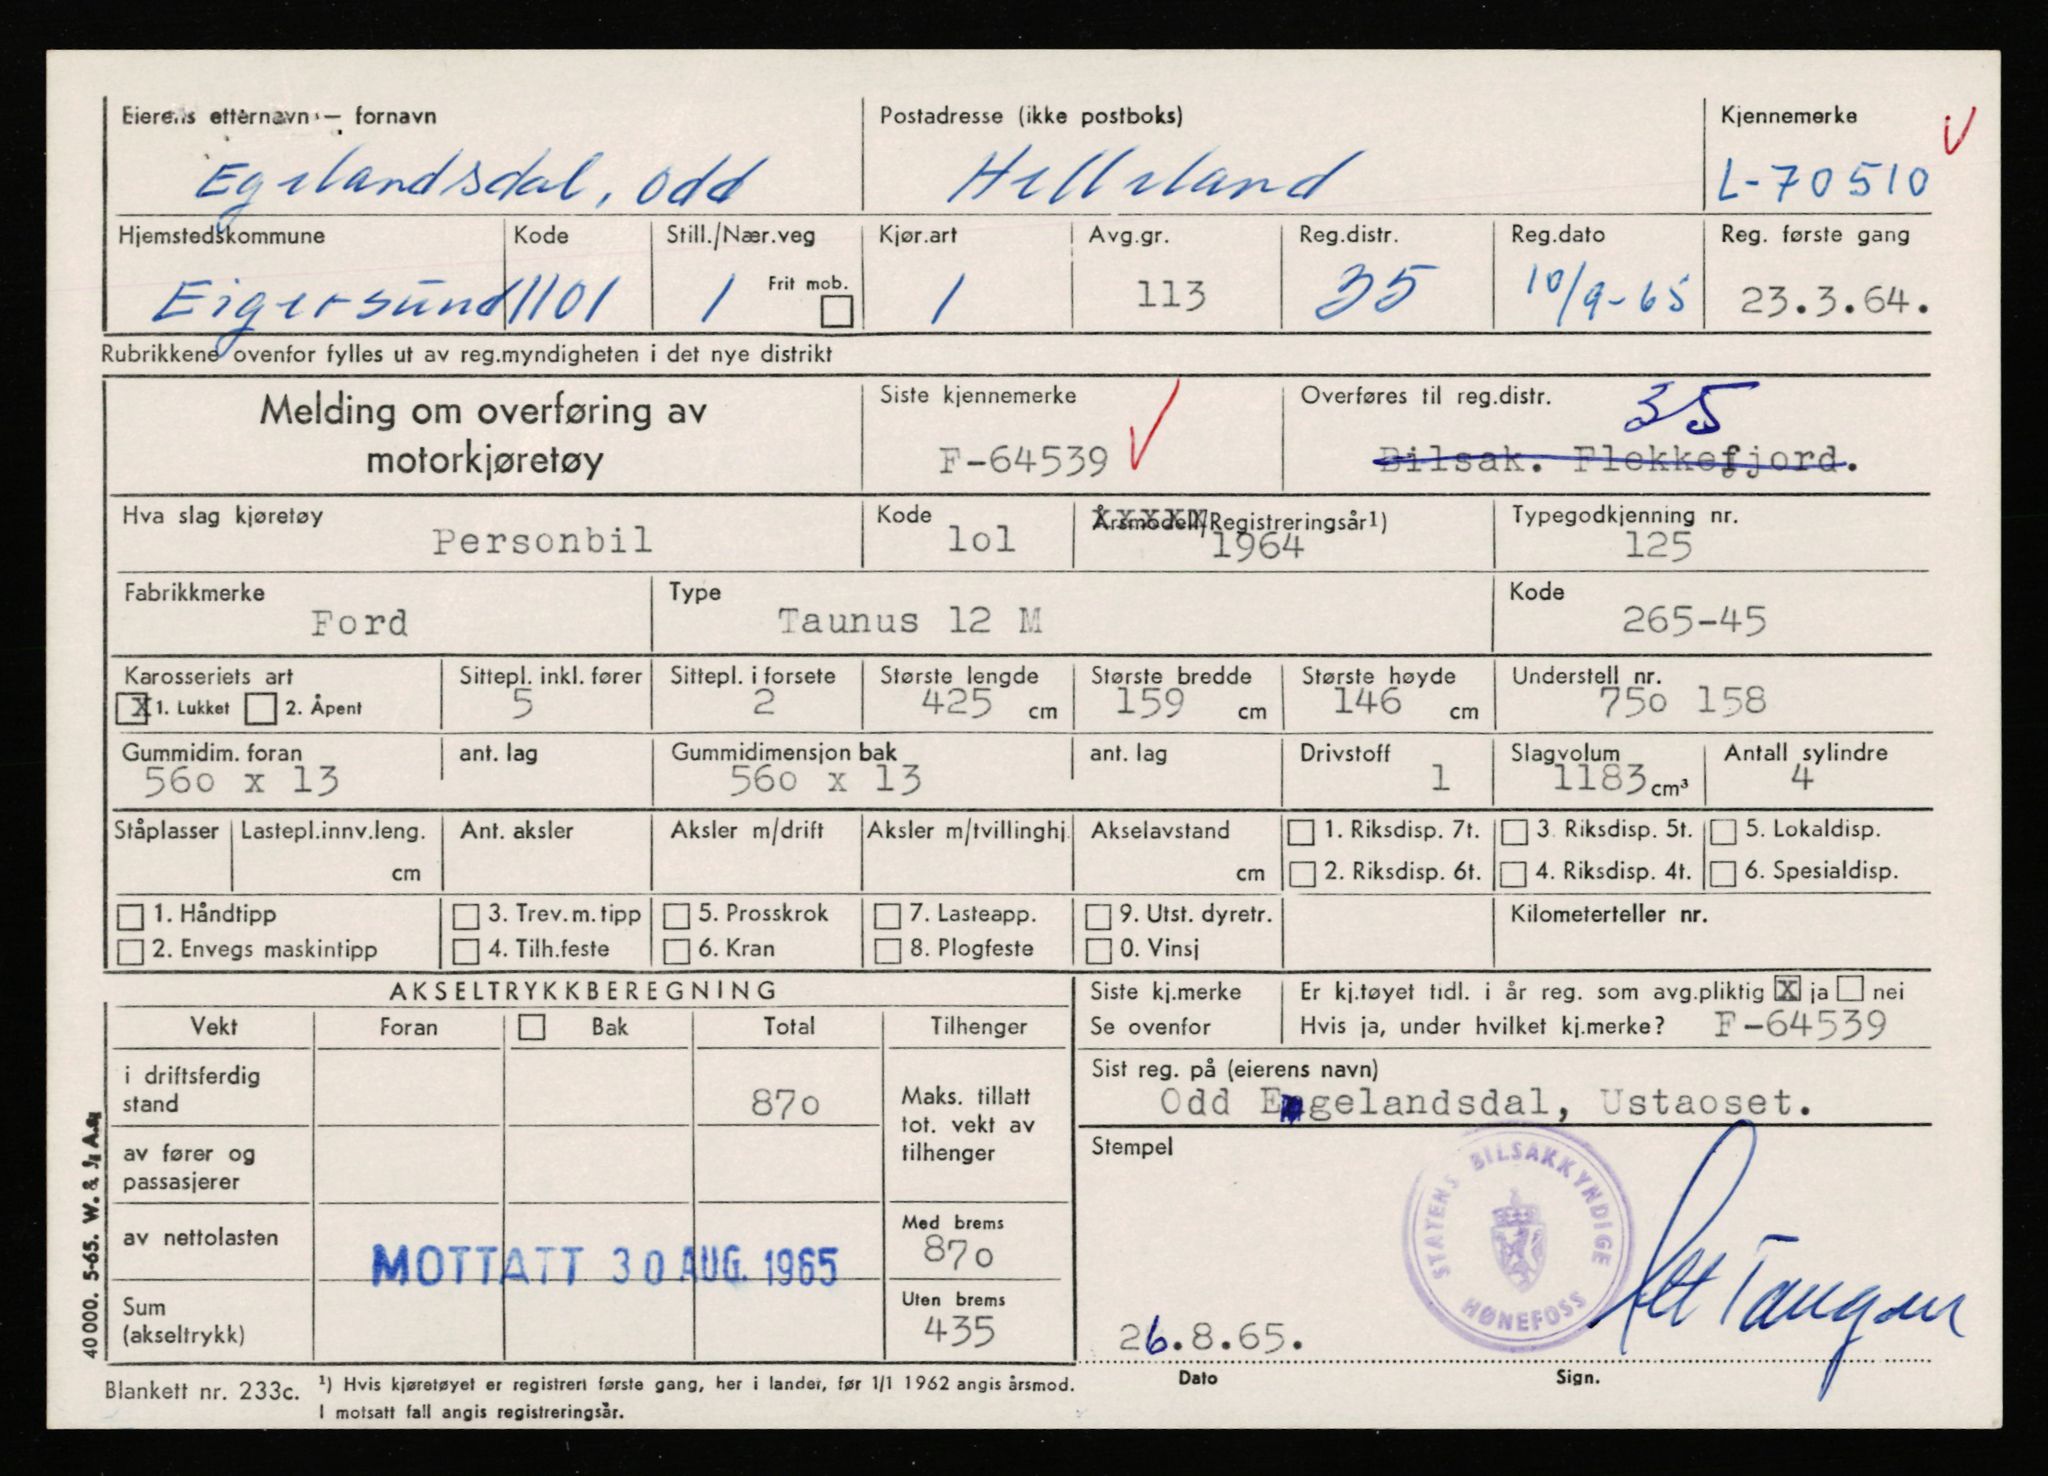 Eierens etternavn — fornavn Postadresse (ikke postboks) Kjennemerke
Egelandsdal, Odd Helleland L-70510
Hjemstedskommune Kode Still./Nær.veg Kjør.art Avg.gr. Reg.distr. Reg.dato Reg. første gang
Eigersund 1101 1 Frit mob. 1 113 35 10/9-65 23.3.64.
Rubrikkene ovenfor fylles ut av reg.myndigheten i det nye distrikt
Melding om overføring av motorkjøretøy
Siste kjennemerke
F-64539
Overføres til reg.distr.
35
Bilsak. Flekkefjord.
Hva slag kjøretøy Kode Årsmodell/Registreringsår1) Typegodkjenning nr.
Personbil 101 1964 125
Fabrikkmerke Type Kode
Ford Taunus 12 M 265-45
Karosseriets art Sittepl. inkl. fører Sittepl. i forsete Største lengde Største bredde Største høyde Understell nr.
X 1. Lukket 2. Åpent 5 2 425 cm 159 cm 146 cm 750 158
Gummidim. foran ant. lag Gummidimensjon bak ant. lag Drivstoff Slagvolum Antall sylindre
560 x 13 560 x 13 1 1183 cm³ 4
Ståplasser Lastepl.innv.leng. Ant. aksler Aksler m/drift Aksler m/tvillinghj. Akselavstand 1. Riksdisp. 7t. 3. Riksdisp. 5t. 5. Lokaldisp.
cm cm 2. Riksdisp. 6t. 4. Riksdisp. 4t. 6. Spesialdisp.
1. Håndtipp 3. Trev. m. tipp 5. Prosskrok 7. Lasteapp. 9. Utst. dyretr. Kilometerteller nr.
2. Envegs maskintipp 4. Tilh.feste 6. Kran 8. Plogfeste 0. Vinsj
AKSELTRYKKBEREGNING
Vekt Foran Bak Total Tilhenger
i driftsferdig stand 870 Maks. tillatt tot. vekt av tilhenger
av fører og passasjerer
av nettolasten Med brems 870
MOTTATT 30 AUG. 1965
Sum (akseltrykk) Uten brems 435
Siste kj.merke Er kj.tøyet tidl. i år reg. som avg.pliktig X ja nei
Se ovenfor Hvis ja, under hvilket kj.merke? F-64539
Sist reg. på (eierens navn)
Odd Egelandsdal, Ustaoset.
Stempel
STATENS BILSAKKYNDIGE
HØNEFOSS
26.8.65.
Dato Sign.
40 000. 5-65. W. &
Blankett nr. 233c. ¹) Hvis kjøretøyet er registrert første gang, her i landet, før 1/1 1962 angis årsmod.
I motsatt fall angis registreringsår.